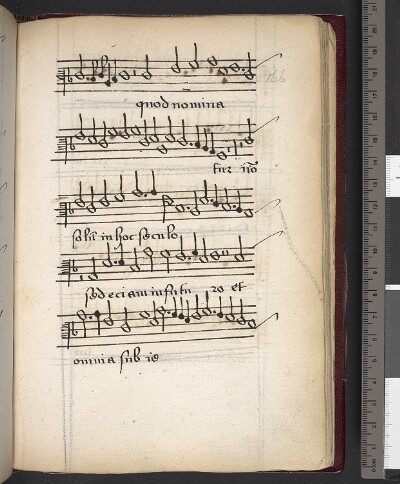 166
quod nomina
tur nō
solū in hoc seculo
sed eciam in futu ro et
omnia sub ie